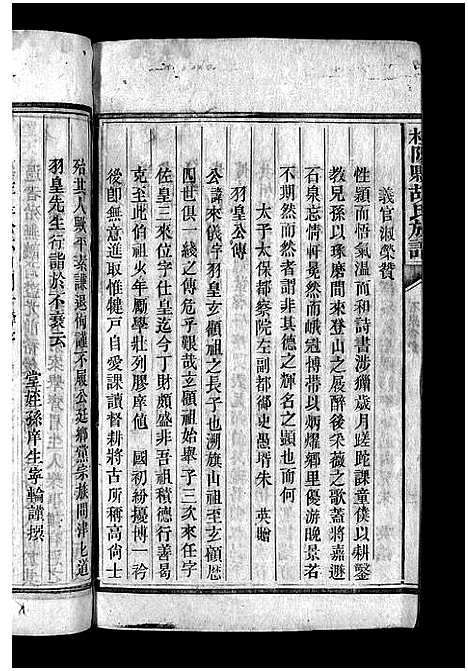 桂陽縣胡氏族譜
義官淑榮贊
性穎而悟氣溫而和詩書涉獵歲月蹉跎課童僕以耕鑿
教兒孫以琢磨閒來登山之屐醉後采薇之歌蓋將嘉遯
石泉忘情軒冕然而峨冠博帶以炳燿鄉里優游晚景若
不期然而然者謂非其德之輝名之顯也而何
太子太保都察院左副都御史愚壻朱英贈
羽皇公傳
公諱來儀字羽皇玄顧祖之長子也溯旗山祖至玄顧歷
四世俱一綫之傳危乎艱哉玄顧祖始舉子三次來任字
佐皇三來位字仕皇迄今丁財頗盛非吾祖積德行善曷
克至此祖弱火年勵學壯列膠庠値 國初紛擾博一衿
後卽無意進取惟犍戶自愛課讀督耕將古所稱高尚士
殆其人歟平素謙退恂謹不履公廷鄉黨宗族間津七道
羽皇先生行誼於不衰云
堂姪孫庠生字輪謹撰